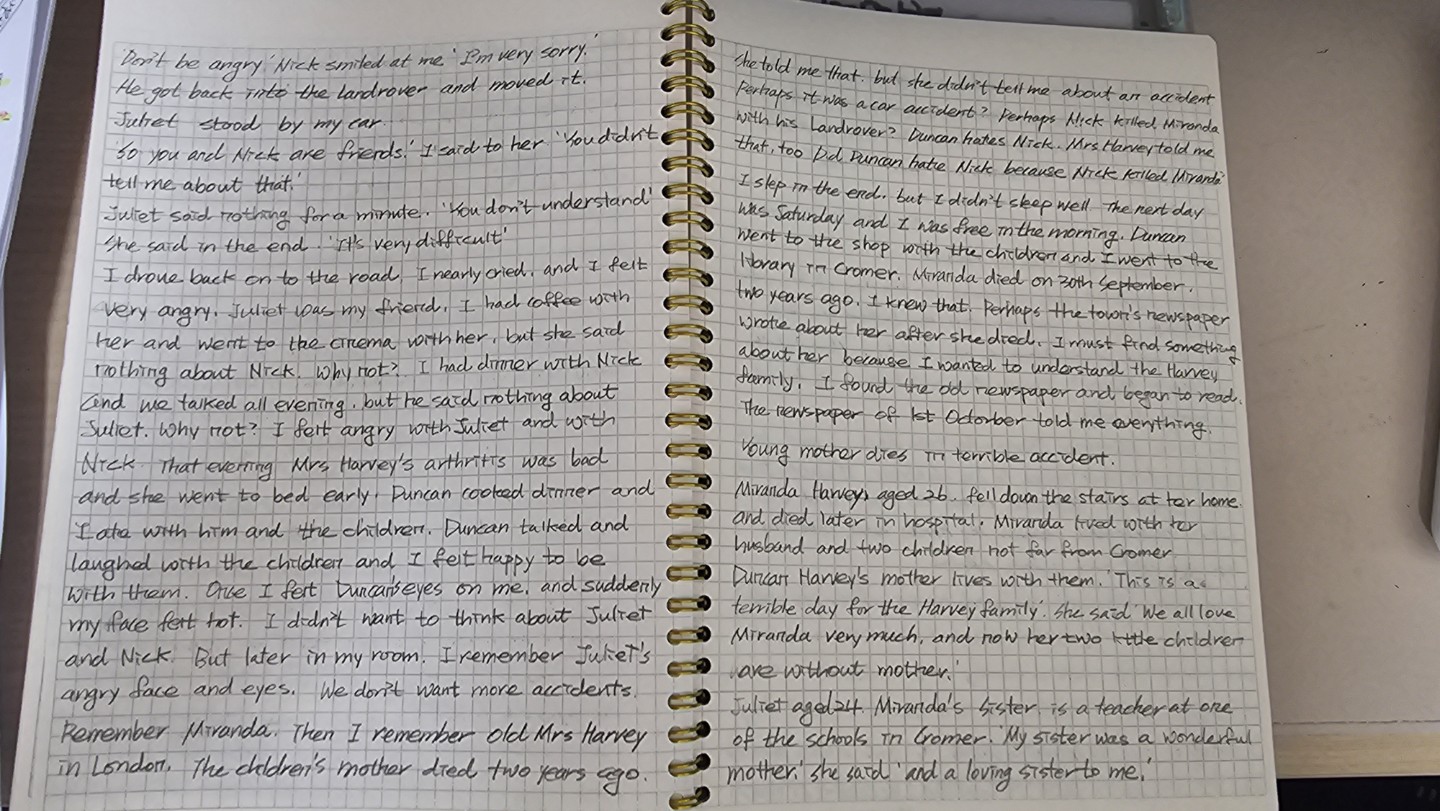 'Don't be angry' Nick smiled at me 'I'm very sorry.'
He got back into the landrover and moved it.
Juliet stood by my car.
'So you and Nick are friends.' I said to her 'You didn't
tell me about that.'
Juliet said nothing for a minute. 'You don't understand'
She said in the end. 'It's very difficult'
I drove back on to the road, I nearly cried, and I felt
very angry. Juliet was my friend, I had coffee with
her and went to the cinema with her, but she said
nothing about Nick. Why not? I had dinner with Nick
and we talked all evening, but he said nothing about
Juliet. Why not? I felt angry with Juliet and with
Nick. That evening Mrs Harvey's arthritis was bad
and she went to bed early. Duncan cooked dinner and
I ate with him and the children. Duncan talked and
laughed with the children and I felt happy to be
with them. Once I felt Duncan's eyes on me, and suddenly
my face felt hot. I didn't want to think about Juliet
and Nick. But later in my room. I remember Juliet's
angry face and eyes. We don't want more accidents.
Remember Miranda. Then I remember old Mrs Harvey
in London. The children's mother died two years ago.
She told me that. but she didn't tell me about an accident
Perhaps it was a car accident? Perhaps Nick killed Miranda
with his Landrover? Duncan hates Nick. Mrs Harvey told me
that, too Did Duncan hate Nick because Nick killed Miranda?
I slep in the end. but I didn't sleep well. The next day
was Saturday and I was free in the morning. Duncan
went to the shop with the children and I went to the
library in Cromer. Miranda died on 30th September.
two years ago. I knew that. Perhaps the town's newspaper
wrote about her after she died. I must find something
about her because I wanted to understand the Harvey
family. I found the old newspaper and began to read.
The newspaper of 1st Octorber told me everything.
Young mother dies in terrible accident.
Miranda Harvey, aged 26. fell down the stairs at her home.
and died later in hospital. Miranda lived with her
husband and two children not far from Cromer
Duncan Harvey's mother lives with them. 'This is a
terrible day for the Harvey family'. She said 'We all love
Miranda very much, and now her two little children
are without mother.'
Juliet aged 24. Miranda's sister, is a teacher at one
of the schools in Cromer. 'My sister was a wonderful
mother.' she said 'and a loving sister to me.'